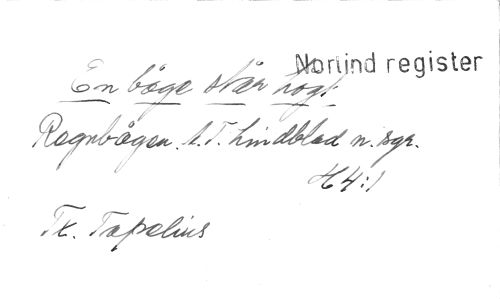 Norlind register
En båge står högt
Regnbågen. A. F. Lindblad n. sgr.
H4:1
Tx. Topelius